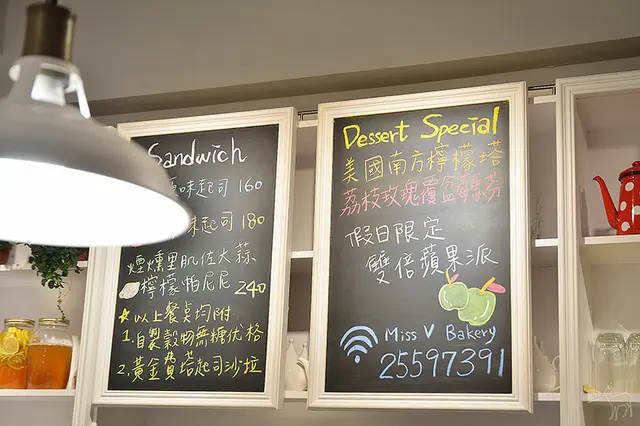 Sandwich
味起司 160
味起司 180
煙燻里肌佐大蒜
檸檬帕尼尼 240
以上餐桌均附
1.自製穀物無糖优格
2.黃金寶塔起司沙拉
Dessert Special
美國南方檸檬塔
荔枝玫瑰覆盆莓慕芬
假日限定
雙倍蘋果派
Miss ♥ Bakery
25597391